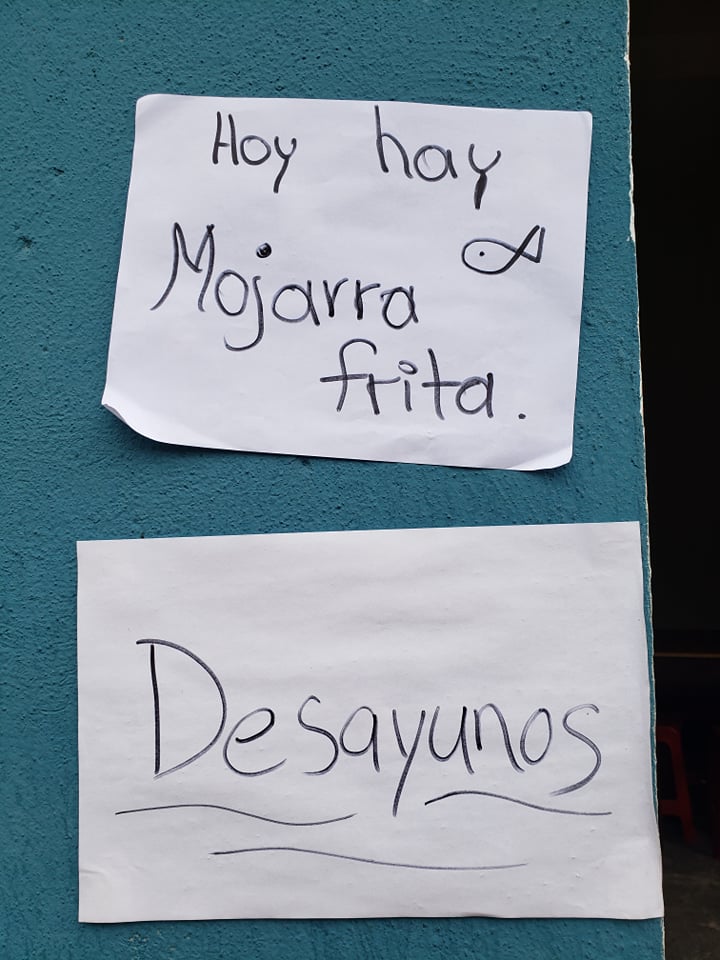 Hoy hay
Mojarra
frita.
Desayunos